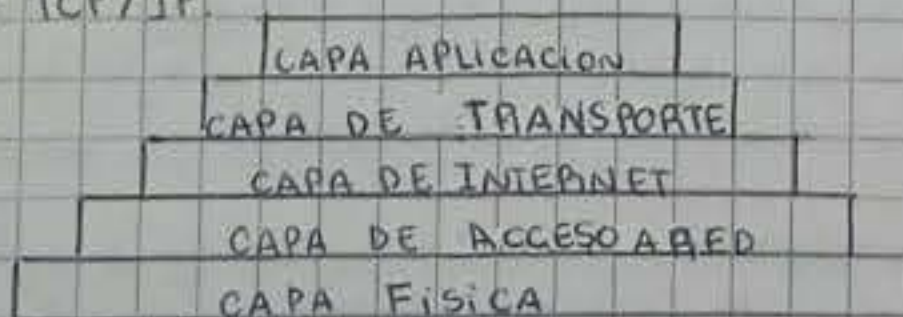 TCP/IP.
CAPA APLICACION
CAPA DE TRANSPORTE
CAPA DE INTERNET
CAPA DE ACCESO A RED
CAPA FiSiCA